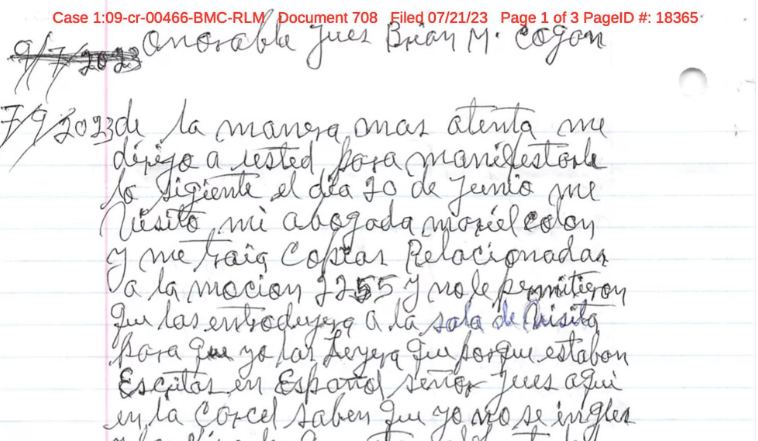 Case 1:09-cr-00466-BMC-RLM Document 708 Filed 07/21/23 Page 1 of 3 PageID #: 18365
9/7/2023 Onorable Jues Brian M. Cogan
7/9/2023 de la manera mas atenta me
dirijo a usted para manifestarle
lo sigiente el día 20 de Junio me
Visito mi abogada mariel colon
y me traia Copias Relacionadas
a la mocion 2255 y no le permitieron
que las entrodujera a la sala de Visita
para que yo las Leyera que porque estaban
Escritas en Español señor Jues aqui
en la Carcel saben que yo no se ingles